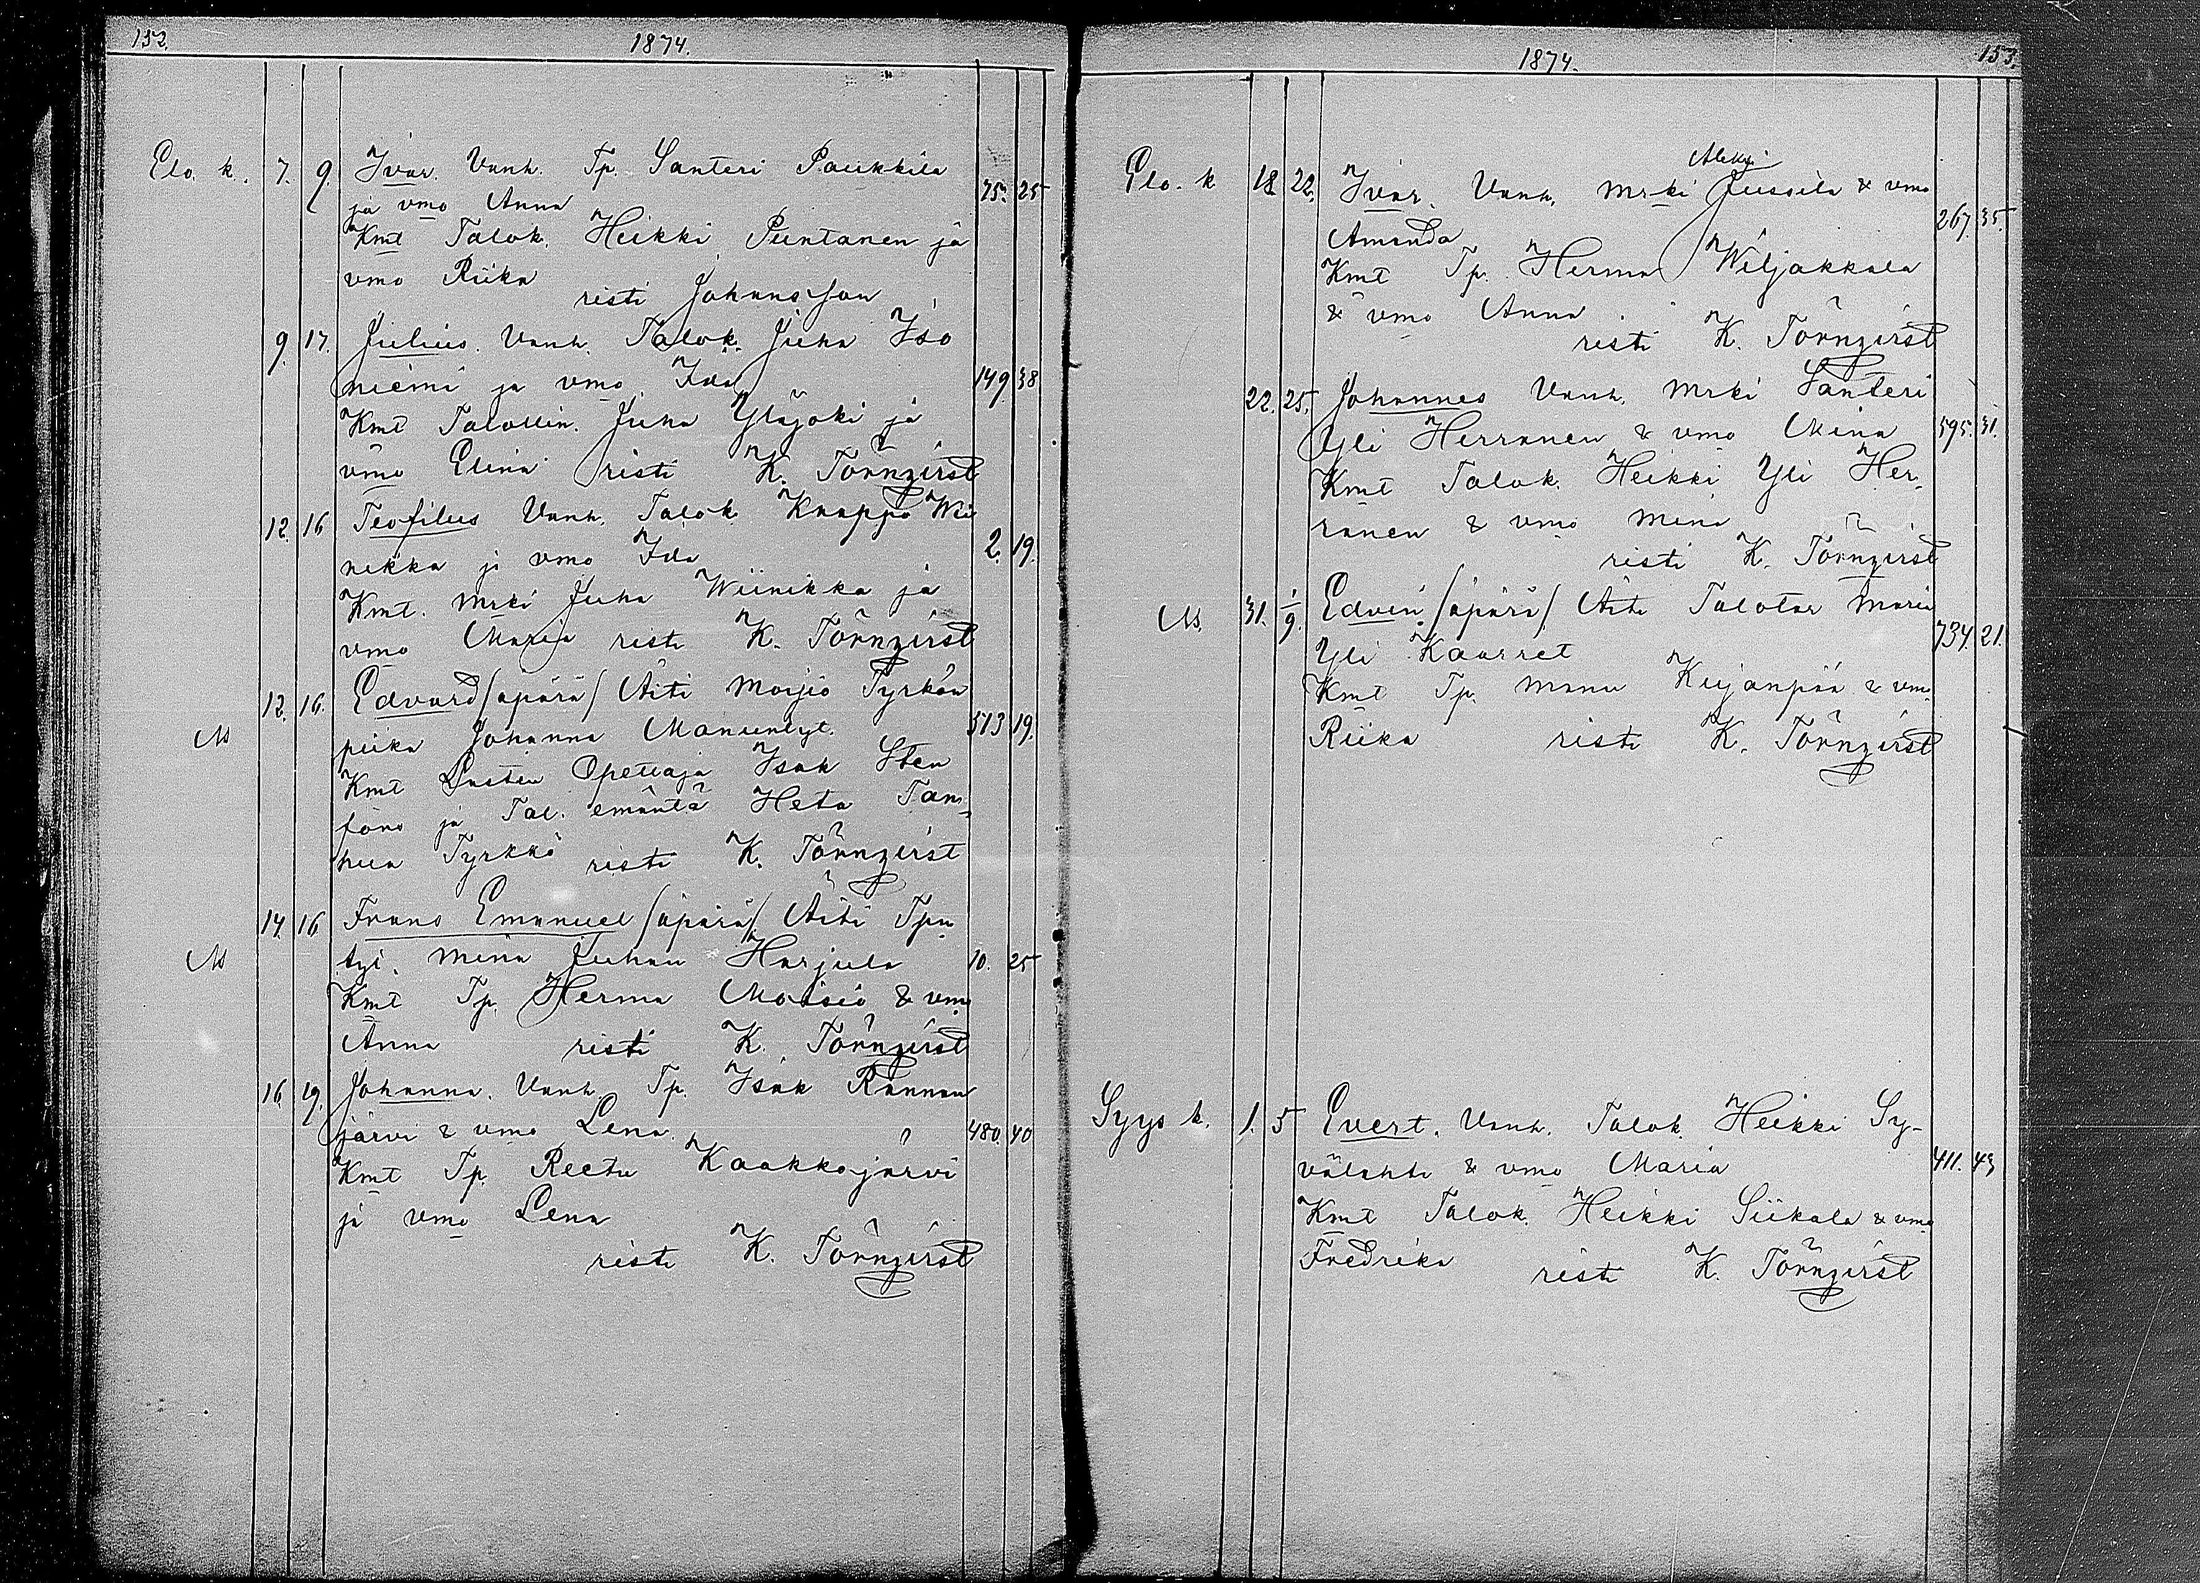 152. 1874.
Elo. k. 7. 9. Ivar. Vanh. Tp. Santeri Paukkila
ja vmo Anna 75. 25
Kmt Talok. Heikki Puntanen ja
vmo Riika
risti Johansson
9. 17. Julius. Vanh. Talok. Juha Iso
niemi ja vmo Ida 149. 38
Kmt Talollin. Juha Yläjoki ja
vmo Elina risti K. Törnqvist
12. 16 Teofilus Vanh. Talok. Knaappo Wii
nikka ja vmo Ida 2. 19.
Kmt. Mrki Juha Wiinikka ja
vmo Maria risti K. Törnqvist
12. 16. Edvard /äpärä/ Äiti Moijio Tyrkön
piika Johanna Manuntyt. 513 19.
Kmt Lasten Opettaja Isak Sten
fors ja Tal. emäntä Heta Tan
hua Tyrkkö risti K. Törnqvist
14. 16 Frans Emanuel /äpärä/ Äiti Tpn
tyt. Mina Juhan Harjula 10. 25
Kmt Tp. Herma Moisio & vmo
Anna risti K. Törnqvist
16. 19. Johanna. Vanh. Tp. Isak Rannan
järvi & vmo Lena. 480. 40
Kmt Tp. Reetu Kaakkojärvi
ja vmo Lena
risti K. Törnqvist
1874. 153.
Aleksi
Elo. k 18 22. Ivar. Vanh. Mrki Jussila & vmo
Amanda 267. 35.
Kmt Tp. Herma Wiljakkala
& vmo Anna
risti K. Törnqvist
22. 25. Johannes Vanh. Mrki Santeri
Yli Herranen & vmo Mina 595. 31.
Kmt Talok. Heikki Yli Her
ranen & vmo Mina
risti K. Törnqvist
31. 1/9. Edvin /äpärä/ Äiti Talotar Maria
Yli Kaarret 734. 21.
Kmt Tp. Manu Kujanpää & vmo
Riika risti K. Törnqvist
Syys k. 1. 5 Evert. Vanh. Talok. Heikki Sy-
välahti & vmo Maria 411. 43
Kmt Talok. Heikki Siikala & vmo
Fredrika risti K. Törnqvist